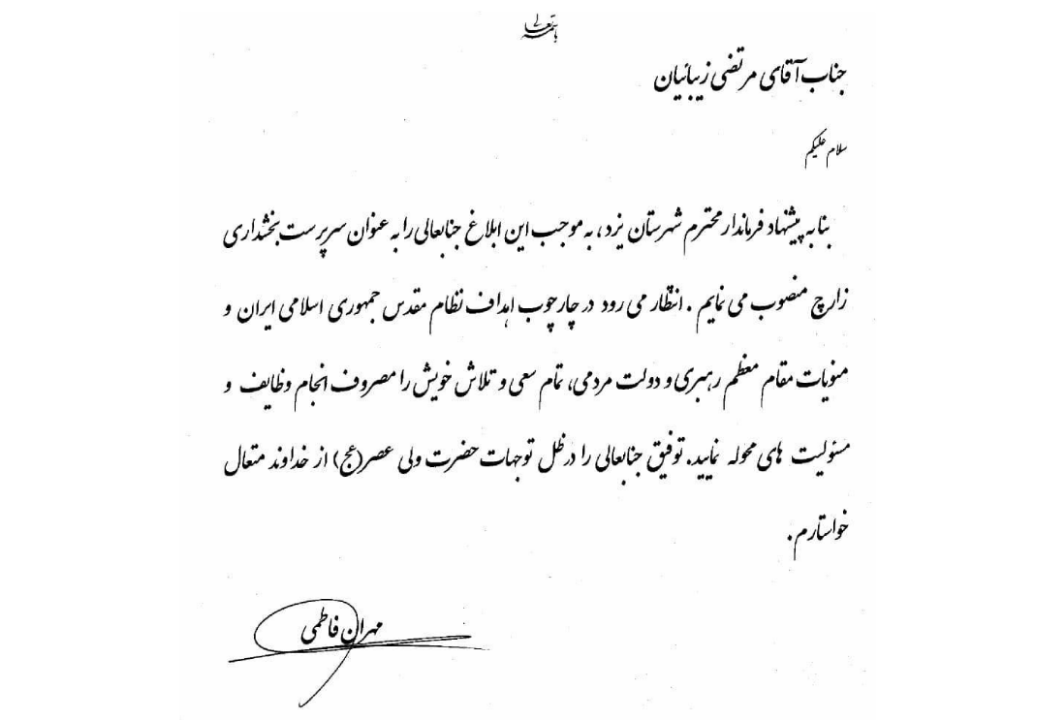 باسمه تعالی
جناب آقای مرتضی زیبائیان
سلام علیکم
بنا به پیشنهاد فرماندار محترم شهرستان یزد، به موجب این ابلاغ جنابعالی را به عنوان سرپرست بخشداری
زارچ منصوب می نمایم . انتظار می رود در چارچوب اهداف نظام مقدس جمهوری اسلامی ایران و
منویات مقام معظم رهبری و دولت مردمی، تمام سعی و تلاش خویش را مصروف انجام وظایف و
مسئولیت های محوله نمایید. توفیق جنابعالی را در ظل توجهات حضرت ولی عصر(عج) از خداوند متعال
خواستارم.
مهران فاطمی